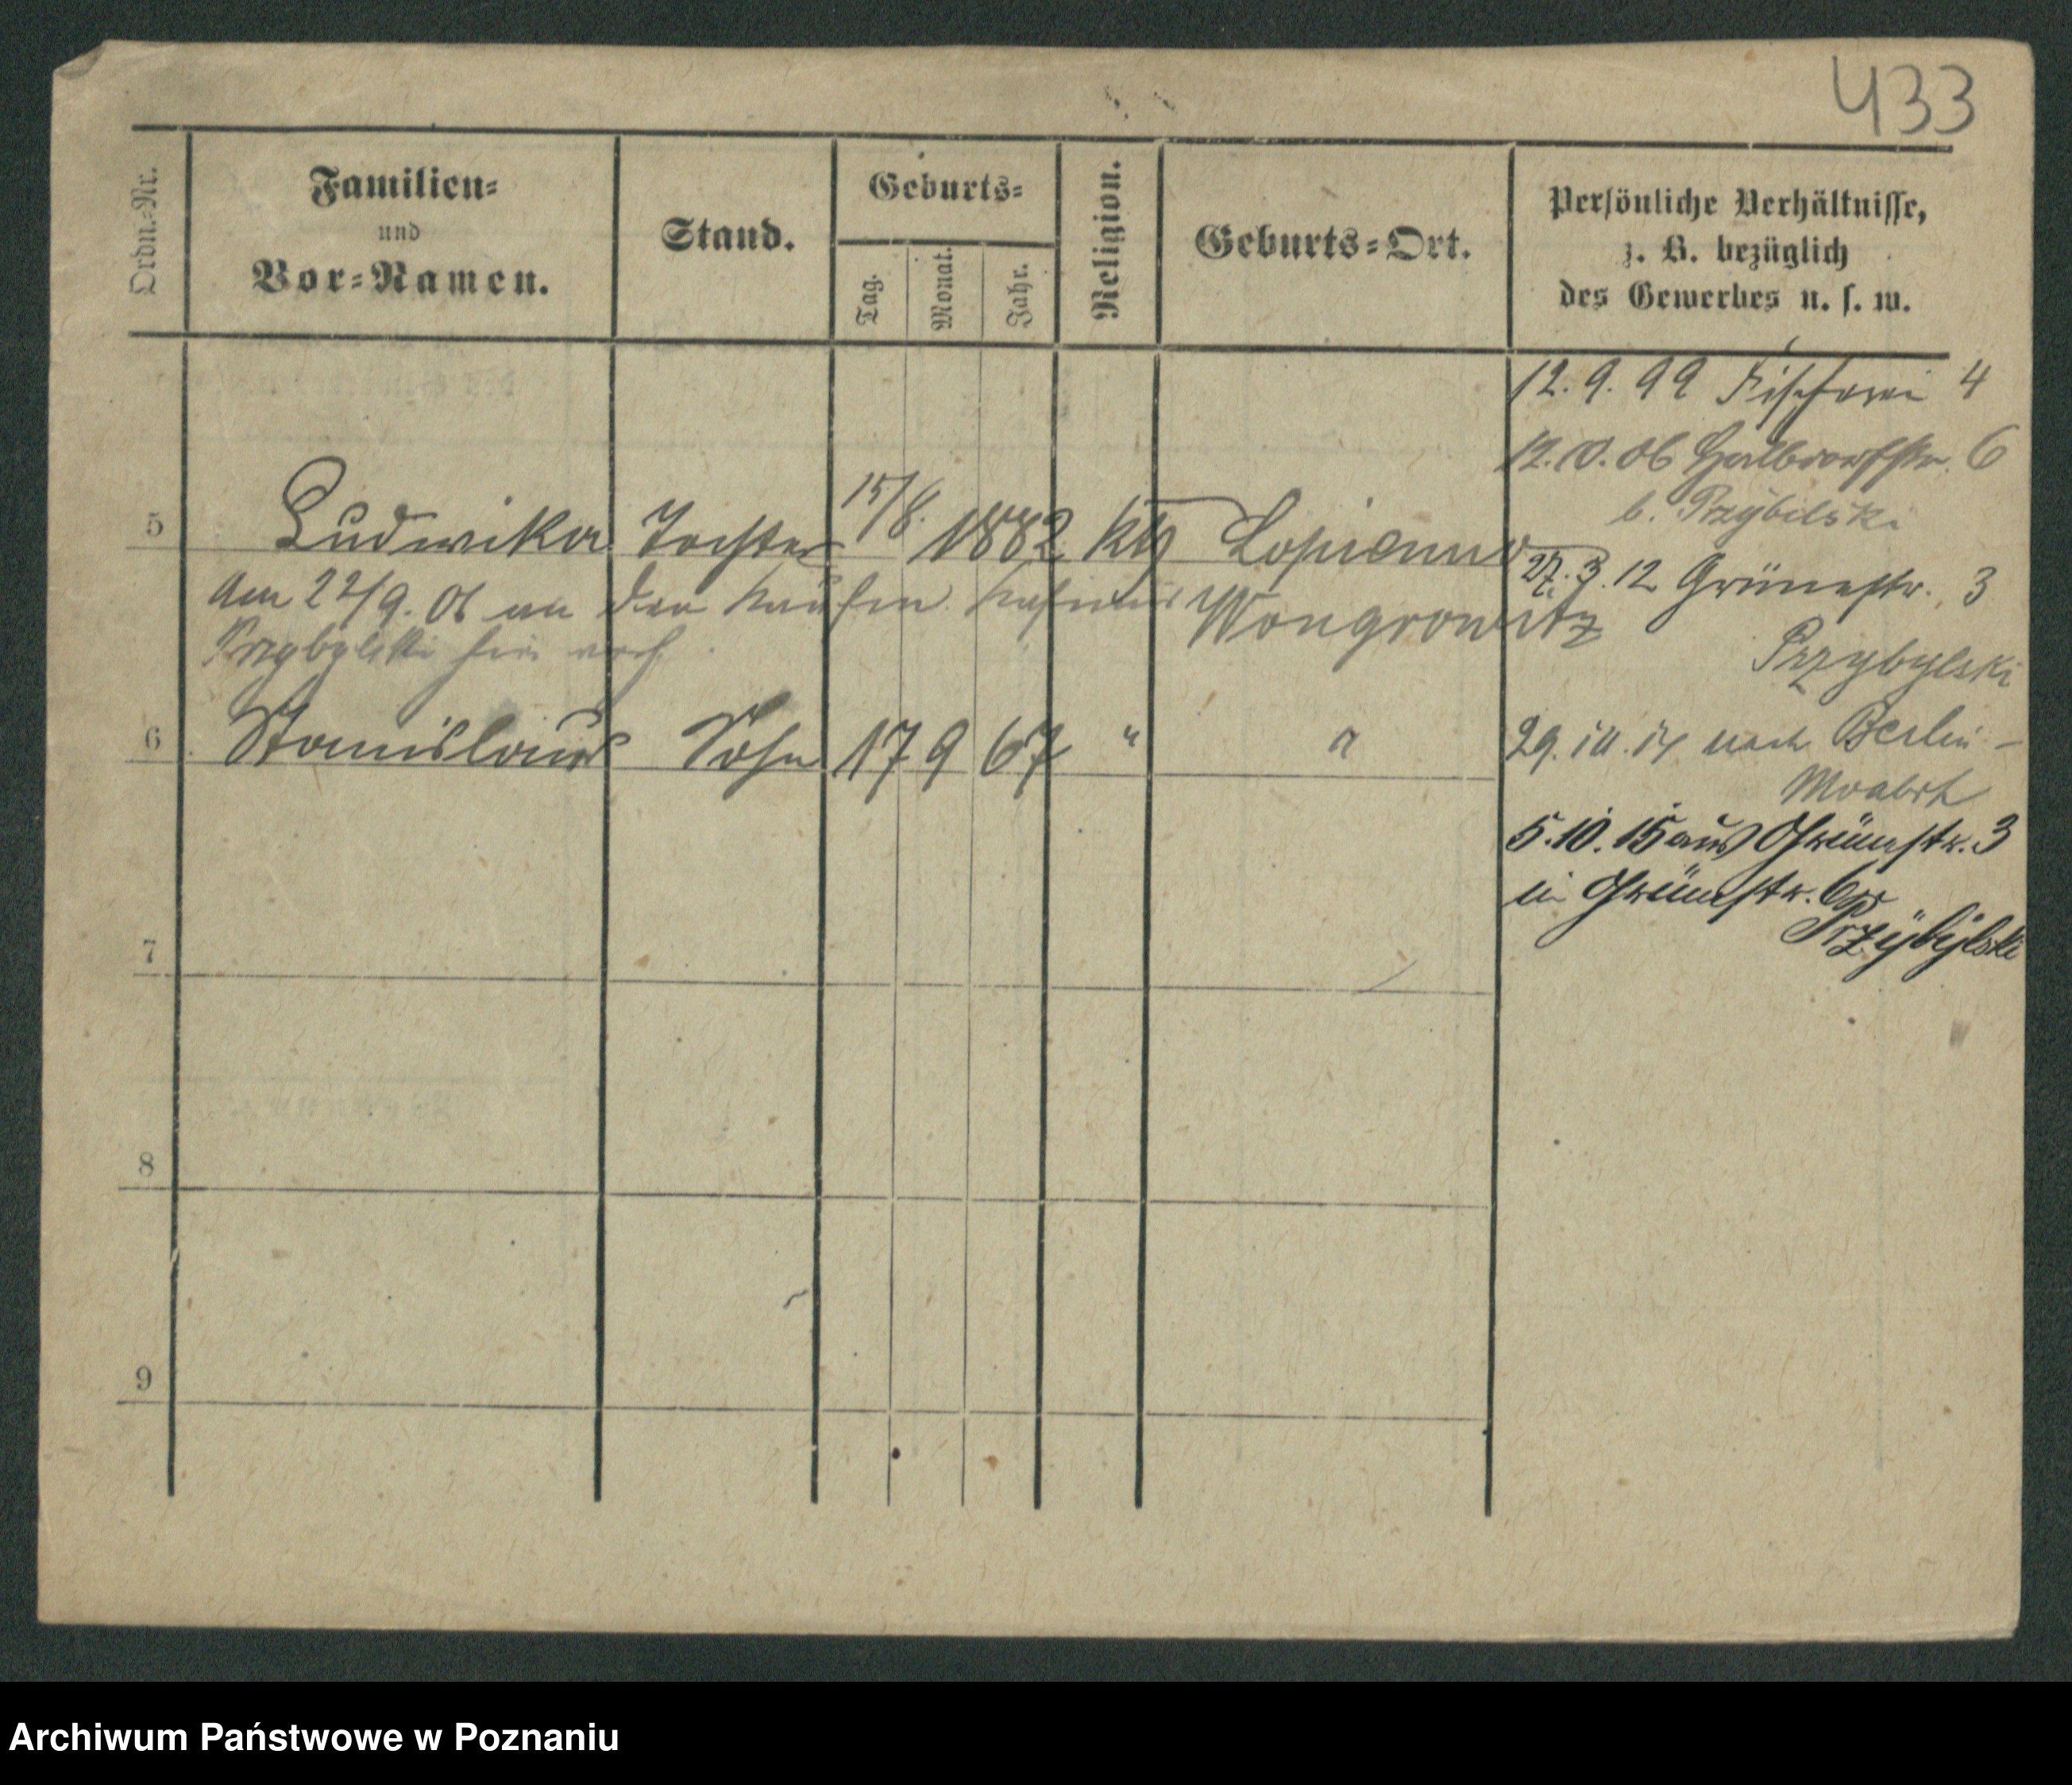 433
Ordn.-Nr.
Familien-
und
Vor-Namen.
Stand.
Geburts-
Tag.
Monat.
Jahr.
Religion.
Geburts-Ort.
Persönliche Verhältnisse,
z. B. bezüglich
des Gewerbes u. s. w.
12. 9. 99 Fischerei 4
12. 0. 06 Halbdorfstr. 6
b. Przybilski
5 Ludwika Tochter 15/8. 1882 kth Lopienno
27. 3. 12 Grünestr. 3
am 22/9. 06 an den Kaufm. Kasimir Wongrowitz
Przybylski hier verh.
Przybylski
6 Stanislaus Sohn 17 9 67 " "
29. 10. 14 nach Berlin-
Moabit
5. 10. 15 aus Grünestr. 3
in Grünestr. 6
Przÿbÿlski
7
8
9
Archiwum Państwowe w Poznaniu